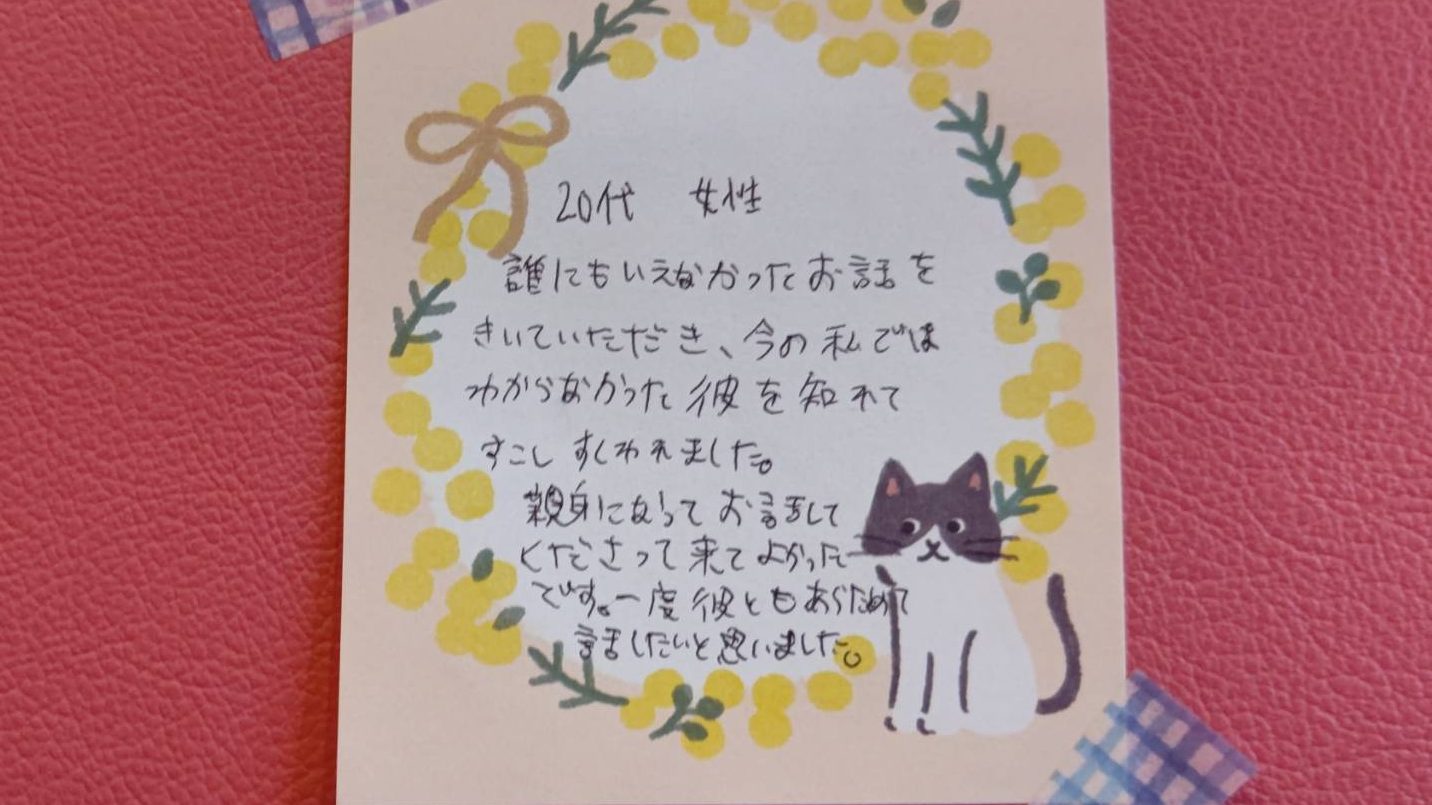 20代 女性
誰にもいえなかったお話を
きいていただき、今の私では
わからなかった彼を知れて
すこしすくわれました。
親身になってお話して
くださって来てよかった
です。一度彼ともあらためて
話したいと思いました。